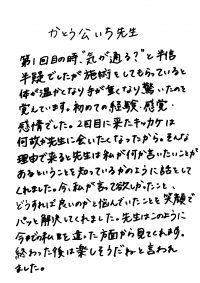 かとう公いち先生
第1回目の時、"気が通る?"と半信
半疑でしたが施術をしてもらっていると
体が温かくなり手が重くなり驚いたのを
覚えています。初めての経験・感覚・
感情でした。2回目に来たキッカケは
何故か先生に会いたくなったから。そんな
理由で来ると先生は私が何か言いたいことが
あるということを知っているかのように話をして
くれました。今、私が言って欲しかったこと、
どうすれば良いのかと悩んでいたことを笑顔で
パッと解決してくれました。先生はこのように
今までの私を違った方面から見てくれます。
終わった後は楽しそうだねと言われ
ました。